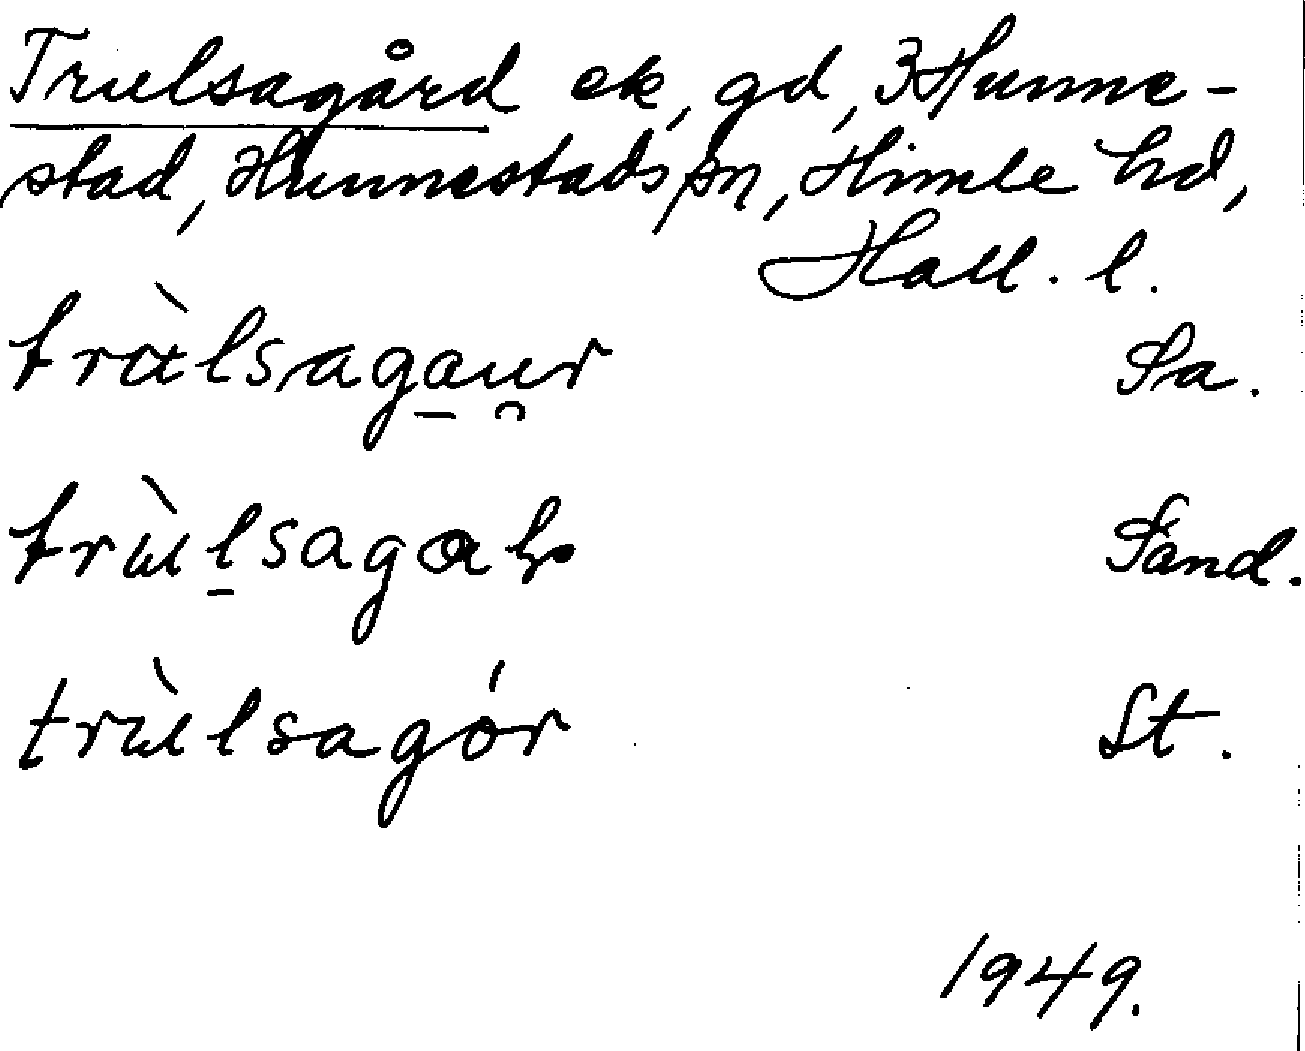 Trulsagård ek, gd, 3 Hunne-
stad, Hunnestads sn, Himle hd,
Hall. l.
trùlsagau̯r Sa.
trùlsagɑr Sand.
trùlsagór St.
1949.